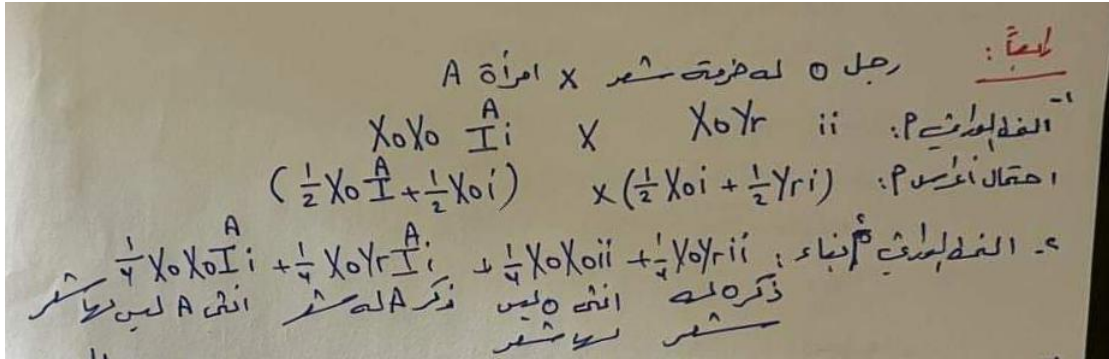 رابعاً:
رجل O له حزمة شعر × امرأة A
1- النمط الوراثي P: XoYr ii × XoXo Iᴬi
احتمال أعراس P: (½Xoi + ½Yri) × (½XoIᴬ + ½Xoi)
2- النمط الوراثي للأبناء: ¼XoYrii + ¼XoXoii + ¼XoYrIᴬi + ¼XoXoIᴬi
ذكر O له أنثى O ليس ذكر A له شعر أنثى A ليس لها شعر
شعر لها شعر